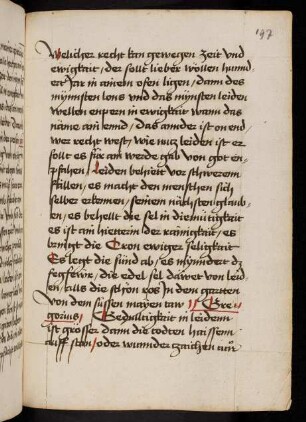 197
welicher recht kan gewegen zeit vnd
ewigkait / der sollt lieber wöllen hunnd
ert Jar in ainem ofen ligen / dann des
mynnsten lons vnd des mynsten leiden
wellen enpern in ewigkeit wann das
hane ain ennd / das annder ist on end /
wer recht west / wie nutz leiden ist er
sollt es für ain werde gab von got en
pfahen / Leiden behiett vor schwerem
fallen / es macht den menschen sich
selber erkennen / seinem nächsten glaub
en / es behellt die sel in diemüttigkeit
es ist ain hietterin der rainigkait / es
bringt die Cron ewiger seligkeit
Es legt die sünd ab / es mynndert dz
fegfewr / die edel sel dawet von leid
en / alls die schön ros In dem gartten
von dem süssen mayen taw Gre
gorius / Gedulltigkait in leidenn
ist grösser dann die todten haissenn
auff stan / oder wunnder zaichen